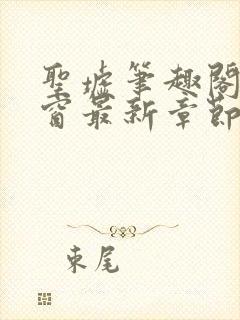 聖墟筆趣閣
窗最新章節
束尾